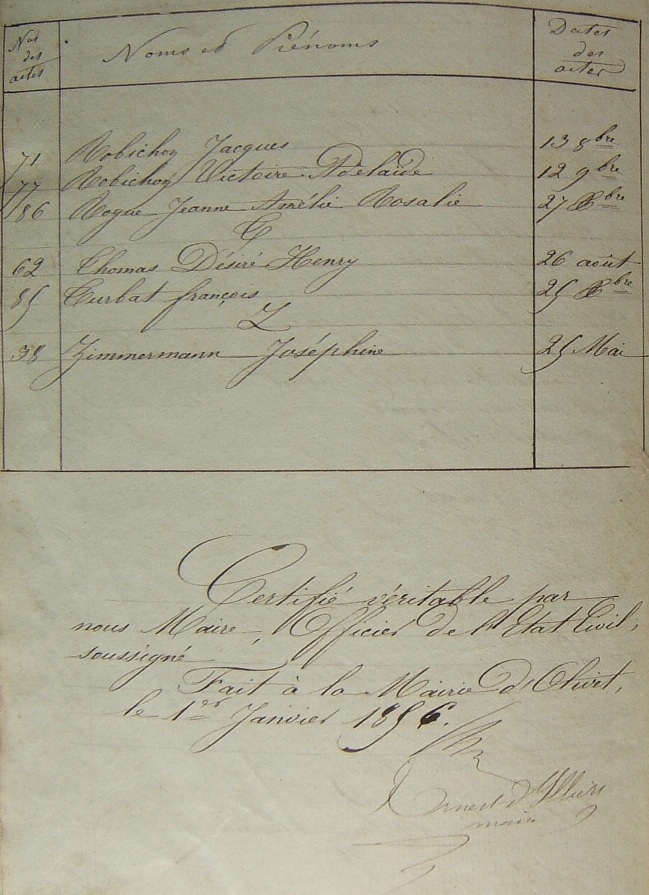 Nos des actes
Noms et Prénoms
Dates des actes
71 Robichon Jacques 13 8bre
77 Robichon Victoire Adelaïde 12 9bre
86 Rogue Jeanne Amélie Rosalie 27 Xbre
T
62 Thomas Désiré Henry 26 août
85 Turbat françois 25 Xbre
Z
38 Zimmermann Joséphine 25 Mai
Certifié véritable par
nous Maire, Officier de l'Etat Civil,
soussigné
Fait à la Mairie d'Olivet,
le 1er Janvier 1856.
Ernest d'Illiers
maire